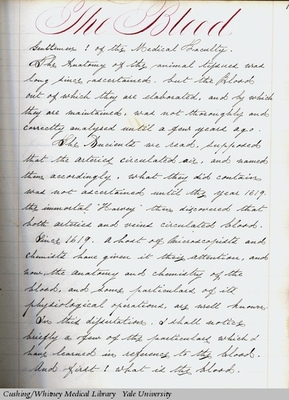 The Blood.
Gentlemen! of the Medical Faculty.
The Anatomy of the animal tissues was
long since ascertained, but the Blood
out of which they are elaborated, and by which
they are maintained, was not thoroughly and
correctly analysed until a few years ago.
The Ancients we read, supposed
that the arteries circulated air, and named
them accordingly. What they did contain
was not ascertained until the year 1619.
the immortal "Harvey" then discovered that
both arteries and veins circulated blood.
Since 1619. A host of Microscopists and
chemists have given it their attention, and
now, the anatomy and chemistry of the
blood, and some particulars of its
physiological operations, are well known.
In this dissertation, I shall notice
briefly a few of the particulars which I
have learned in reference to the blood.
And first! what is the blood.
Cushing/Whitney Medical Library Yale University